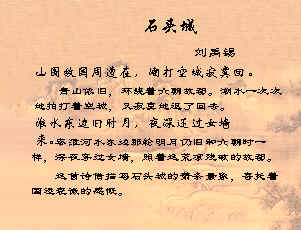 石头城
刘禹锡
山围故国周遭在，潮打空城寂寞回。
青山依旧，环绕着六朝故都。潮水一次次
地拍打着空城，又寂寞地退了回去。
淮水东边旧时月，夜深还过女墙
来。秦淮河水东边那轮明月仍旧和六朝时一
样，深夜穿过女墙，照着这荒凉残破的故都。
这首诗借描写石头城的萧条景象，寄托着
国运衰微的感慨。